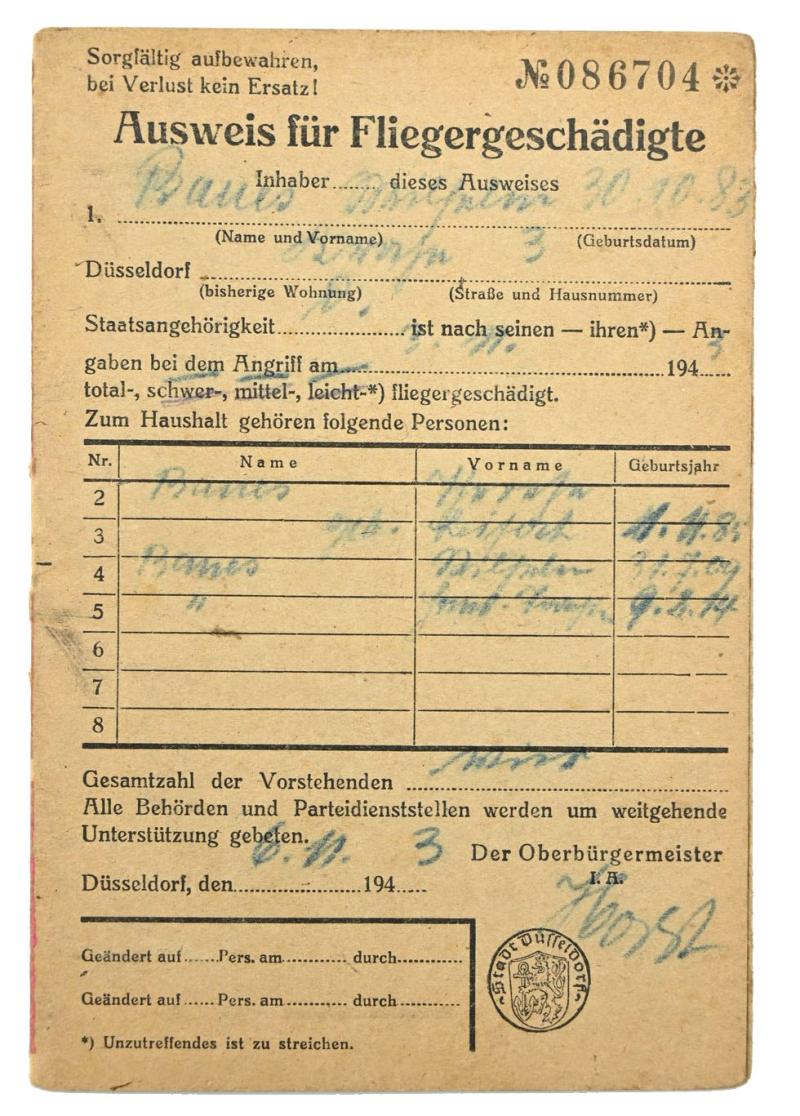 Sorgfältig aufbewahren,
bei Verlust kein Ersatz!
№ 086704 ❊
Ausweis für Fliegergeschädigte
Inhaber........ dieses Ausweises
1. Baues Wilhelm 30.10.83
(Name und Vorname) (Geburtsdatum)
Düsseldorf 3
(bisherige Wohnung) (Straße und Hausnummer)
Staatsangehörigkeit D. ist nach seinen — ihren*) — An-
gaben bei dem Angriff am 3. 11. 1943
total-, schwer-, mittel-, leicht-*) fliegergeschädigt.
Zum Haushalt gehören folgende Personen:
Nr. Name Vorname Geburtsjahr
2 Baues
3 geb. 11.11.85
4 Baues Wilhelm 31.7.09
5 " 9.2.14
6
7
8
Gesamtzahl der Vorstehenden vier
Alle Behörden und Parteidienststellen werden um weitgehende
Unterstützung gebeten.
Düsseldorf, den 6. 11. 1943
Der Oberbürgermeister
I. A.
Horst
Stadt Düsseldorf
Geändert auf ...... Pers. am ............ durch ............
Geändert auf ...... Pers. am ............ durch ............
*) Unzutreffendes ist zu streichen.